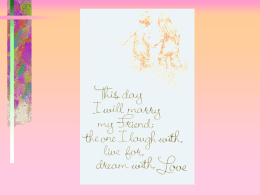 This day
I will marry
my Friend;
the one I laugh with,
live for,
dream with, Love